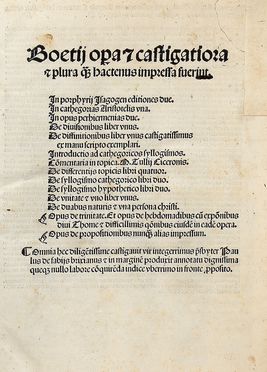 Boetij opa ⁊ castigatiora
⁊ plura q̃ȝ hactenus impressa fuerint.
In porphyrij Isagogen editiones due.
In cathegorias Aristotelis vna.
In opus perhiermenias due.
De diuisionibus liber vnus.
De diffinitionibus liber vnus castigatissimus
ex manuscripto exemplari.
Introductio ad cathegoricos syllogismos.
Cõmentaria in topica .M. Tullij Ciceronis.
De differentijs topicis libri quatuor.
De syllogismo cathegorico libri duo.
De syllogismo hypothetico libri duo.
De vnitate ⁊ vno liber vnus.
De duabus naturis ⁊ vna persona christi.
Opus de trinitate. Et opus de hebdomadibus cũ expõnibus
diui Thome ⁊ difficilimis qõnibus eiusdẽ in eadẽ opera.
Opus de propositionibus nunq̃ȝ alias impressum.
¶ Omnia hec diligẽtissime castigauit vir integerrimus p̃sbyter Pau
lus de fabijs brixianus ⁊ in marginẽ produxit annotatu dignissima
queq; nullo labore cõquirẽda indice vberrimo in fronte, pposito.